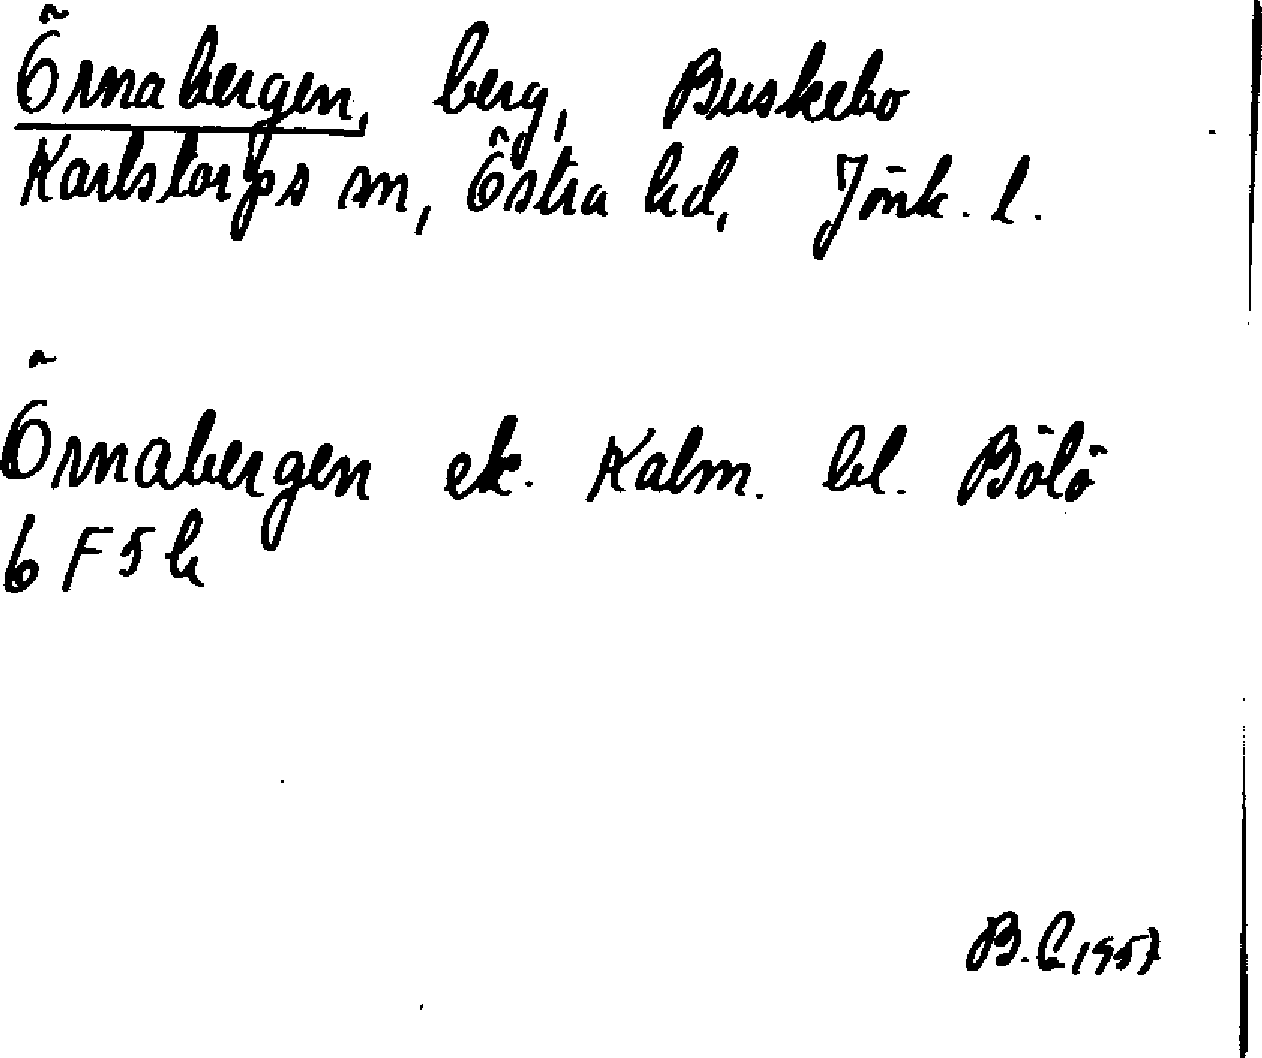 Örnabergen, berg, Buskebo
Karlstorps sn, Östra hd, Jönk. l.
Örnabergen ek. Kalm. bl. Bölö
6 F 5 h
B. E 1957